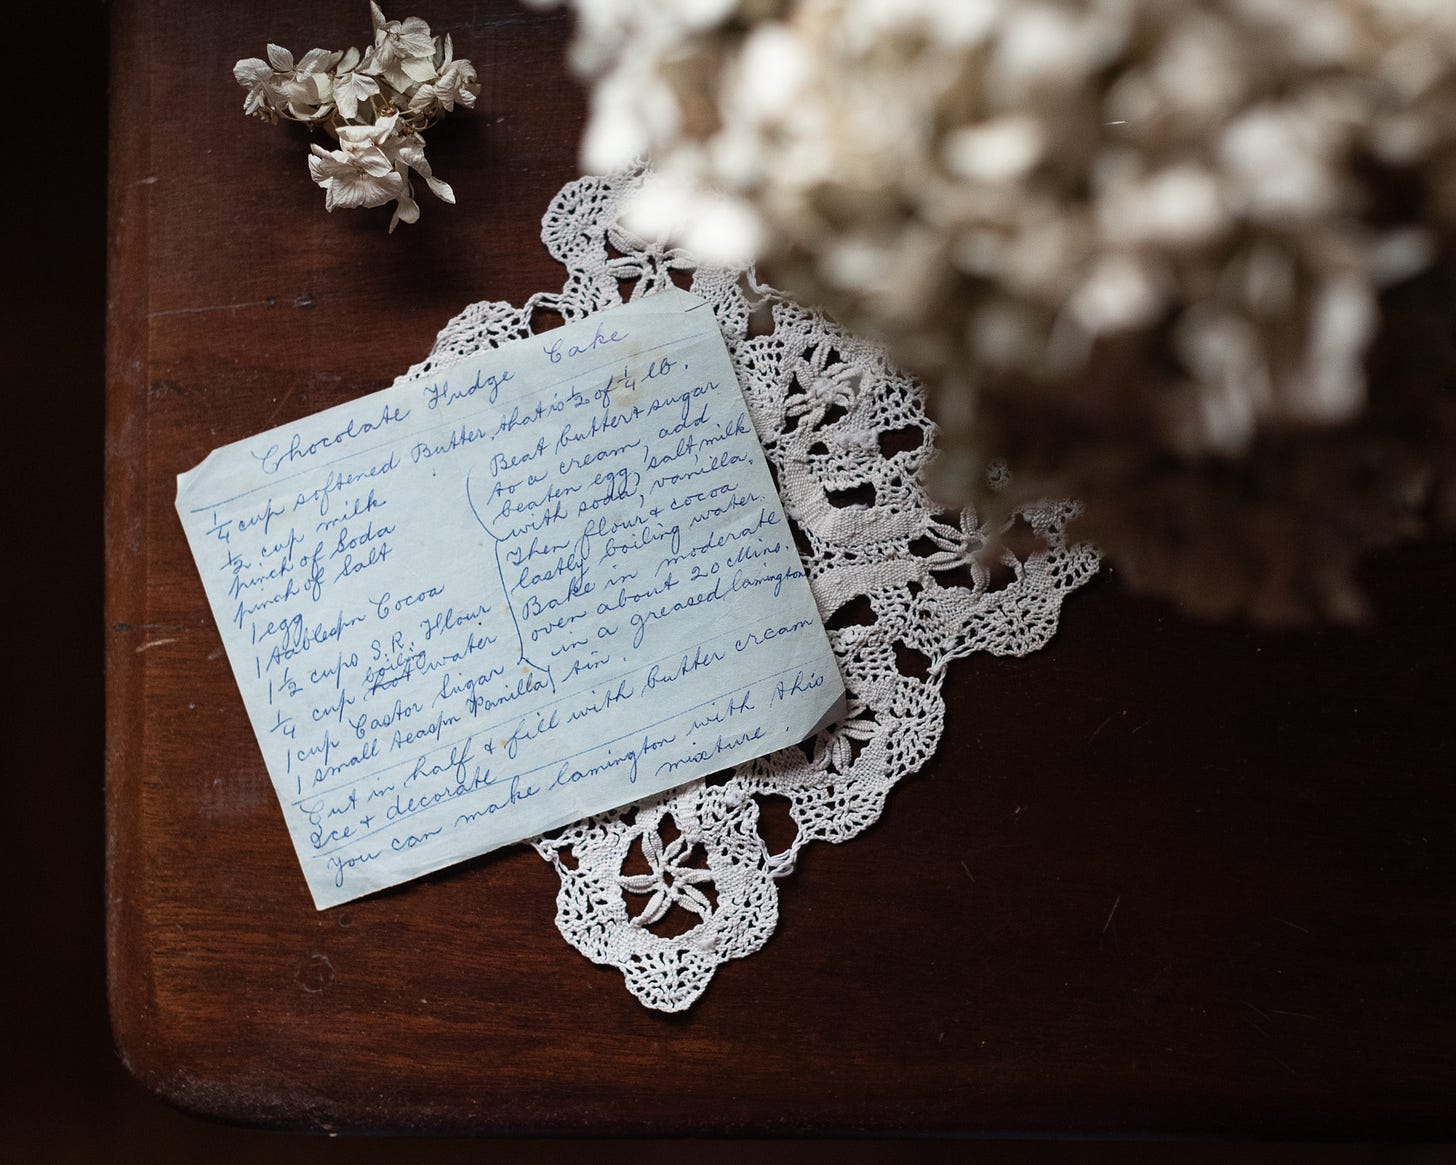 Chocolate Fudge Cake
1/4 cup softened Butter, that is 1/2 of 1/4 lb.
1/2 cup milk
pinch of Soda
pinch of Salt
1 egg
1 tablespn Cocoa
1 1/2 cups S.R. Flour
boiling
1/4 cup hot water
1 cup Castor Sugar
1 small teaspn Vanilla
Beat butter & sugar
to a cream, add
beaten egg, salt, milk
with soda, vanilla.
Then flour & cocoa
lastly boiling water.
Bake in moderate
oven about 20 mins.
in a greased lamington
tin.
Cut in half & fill with butter cream
Ice & decorate
You can make lamington with this
mixture.